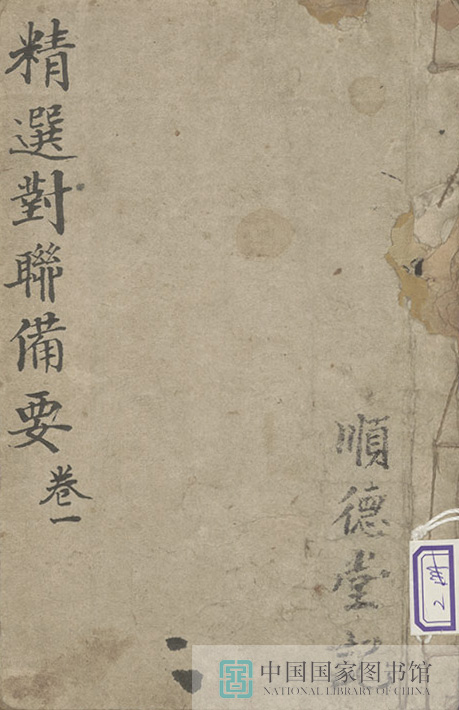 精選對聯備要
卷一
順德堂記
中国国家图书馆
NATIONAL LIBRARY OF CHINA